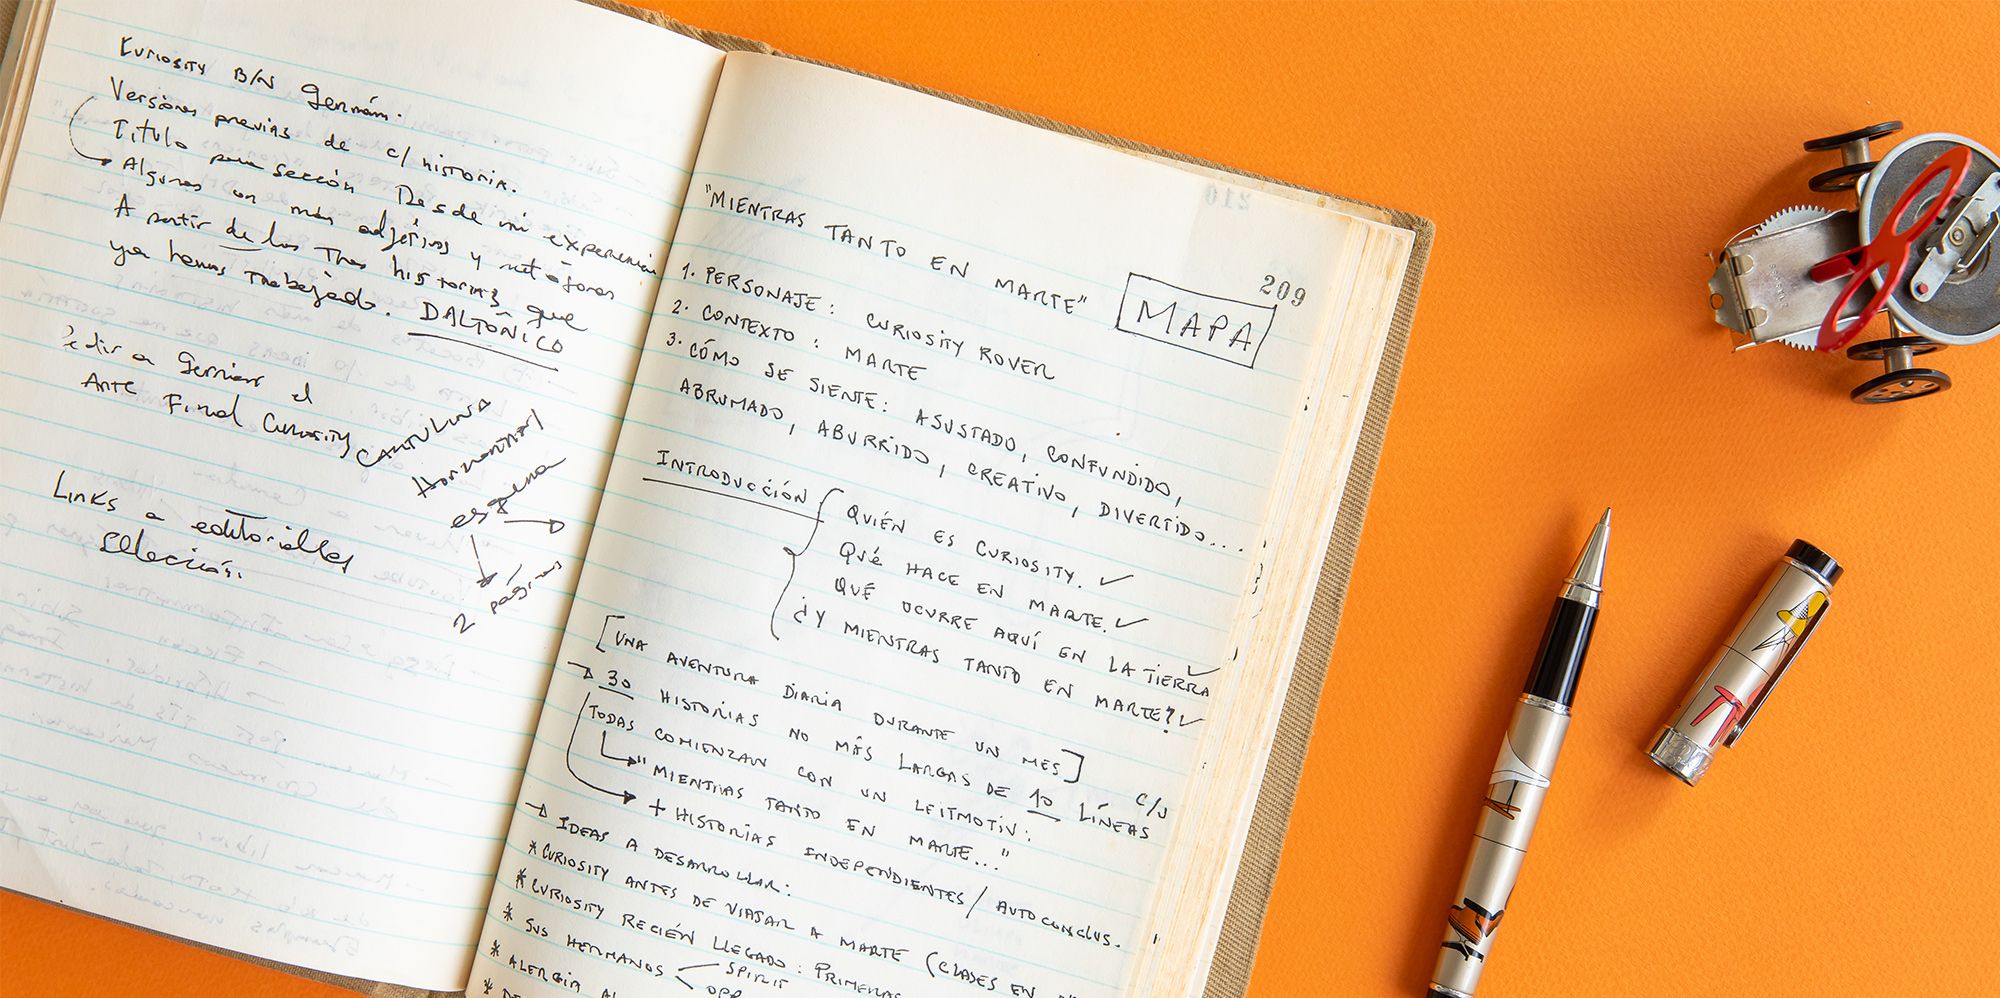 Curiosity B/N Germán.
Versiones previas de c/historia.
Título para sección Desde mi experiencia
Algunos con más adjetivos y metáforas
A partir de las tres historias que
ya hemos trabajado. DALTÓNICO
Pedir a Germán el
Ante Final Curiosity
CARTULINA
Horizontal
esquema
2 páginas
Links a editoriales
selección.
209
"MIENTRAS TANTO EN MARTE"
MAPA
1. PERSONAJE: CURIOSITY ROVER
2. CONTEXTO: MARTE
3. CÓMO SE SIENTE: ASUSTADO, CONFUNDIDO,
ABRUMADO, ABURRIDO, CREATIVO, DIVERTIDO...
INTRODUCCIÓN
QUIÉN ES CURIOSITY. ✓
QUÉ HACE EN MARTE. ✓
QUÉ OCURRE AQUÍ EN LA TIERRA ✓
¿Y MIENTRAS TANTO EN MARTE? ✓
[UNA AVENTURA DIARIA DURANTE UN MES]
→ 30 HISTORIAS NO MÁS LARGAS DE 10 LÍNEAS C/U
TODAS COMIENZAN CON UN LEITMOTIV:
"MIENTRAS TANTO EN MARTE..."
+ HISTORIAS INDEPENDIENTES / AUTOCONCLUS.
→ IDEAS A DESARROLLAR:
* CURIOSITY ANTES DE VIAJAR A MARTE (CLASES EN
* CURIOSITY RECIÉN LLEGADO: PRIMERAS
* SUS HERMANOS SPIRIT
OPP
* ALERGIA AL